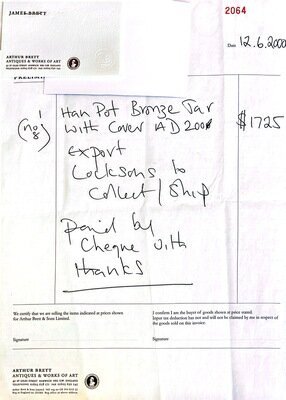 JAMES BRETT
2064
ARTHUR BRETT
ANTIQUES & WORKS OF ART
Date 12.6.2000
(no 8)
Han Pot Bronze Jar
with Cover AD 200
$1725
Export
Locksons to
Collect/Ship
paid by
Cheque with
thanks
We certify that we are selling the items indicated at prices shown
for Arthur Brett & Sons Limited.
I confirm I am the buyer of goods shown at price stated.
Input tax deduction has not and will not be claimed by me in respect of
the goods sold on this invoice.
Signature
Signature
ARTHUR BRETT
ANTIQUES & WORKS OF ART